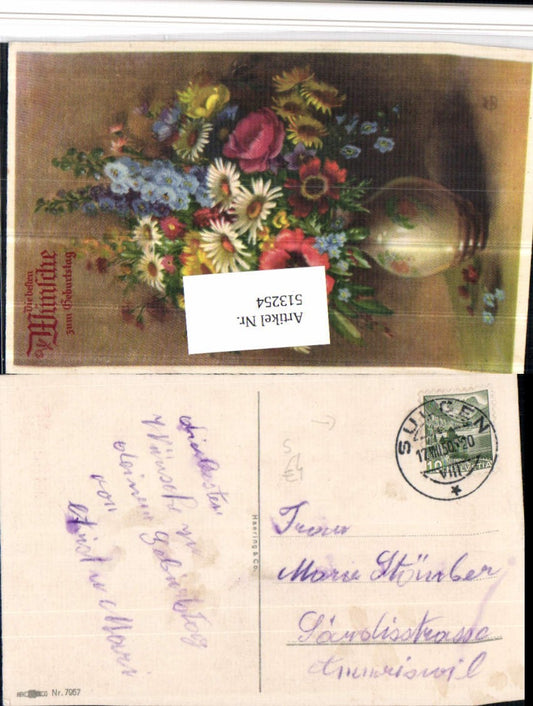 Die besten
Wünsche
zum Geburtstag
Artikel Nr.
513254
die besten
Wünsche zu
deinem Geburtstag
von
Mari
Haering & Co.
SULGEN
10
HELVETIA
Frau
Marie Stömber
Sändisstrasse
Amriswil
Nr. 7957